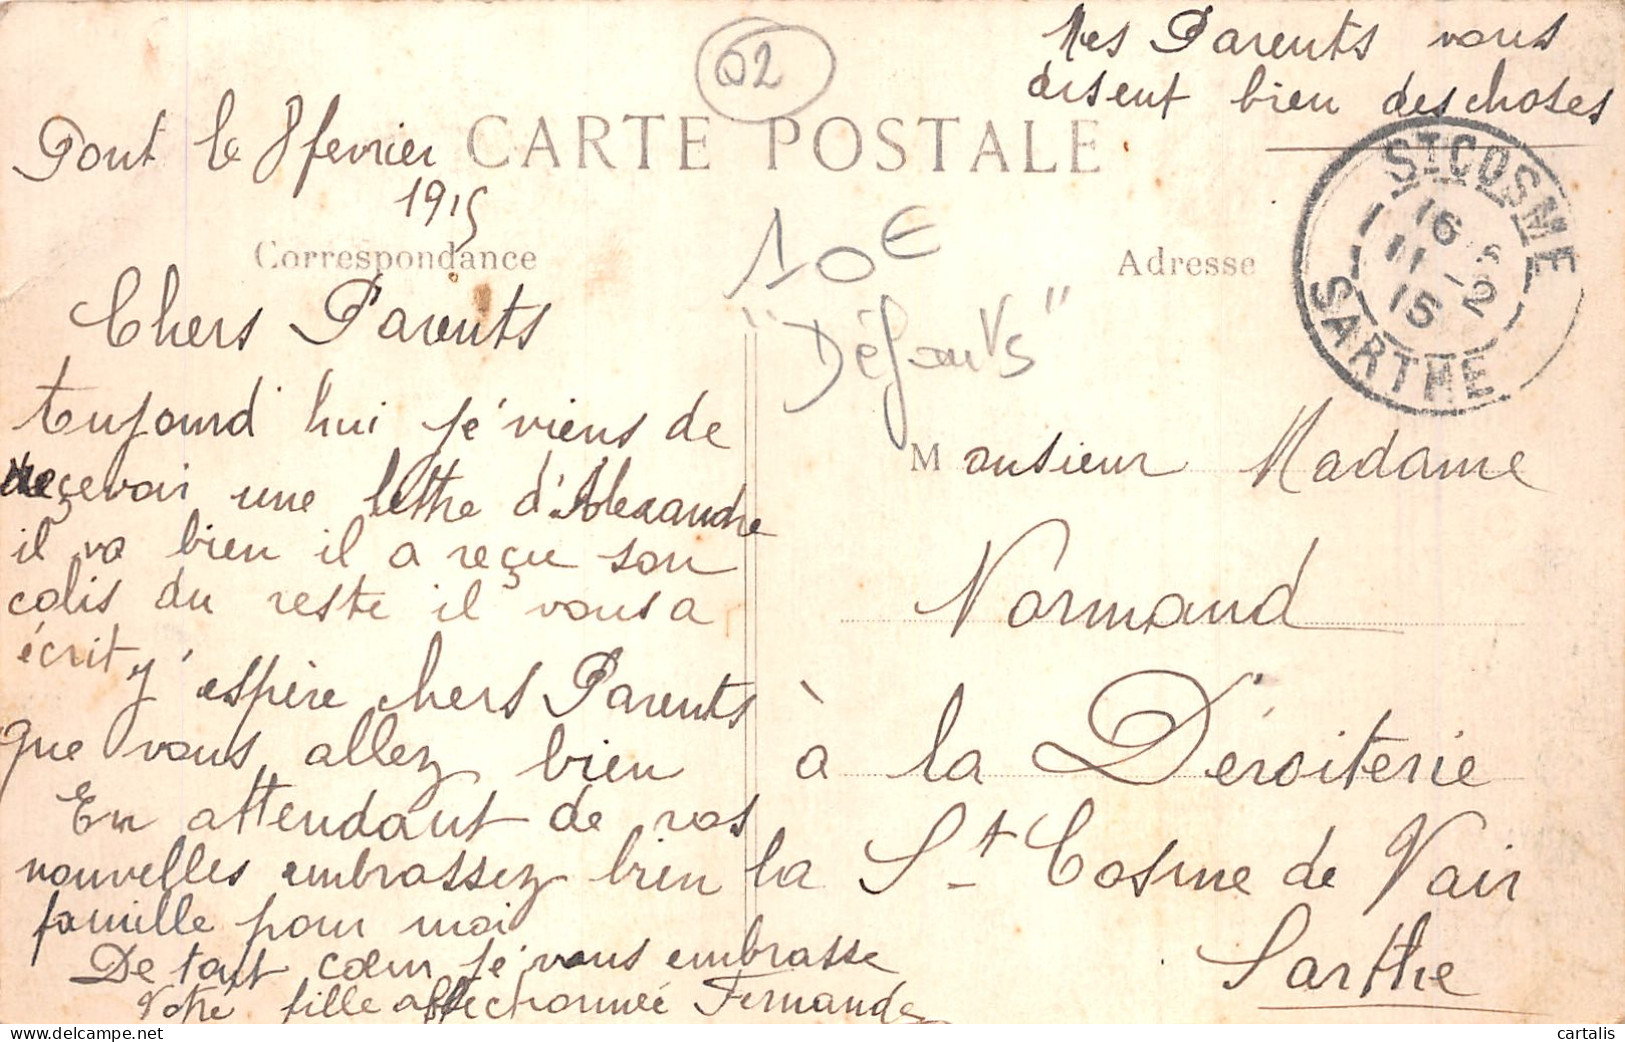 Mes Parents vous
disent bien des choses
02
CARTE POSTALE
Pont le 8 fevrier
1915
Correspondance
Adresse
ST COSME
16
11 -2
15
SARTHE
10€
"Défauts"
Chers Parents
Aujourd'hui je viens de
reçevoir une lettre d'Alexandre
il va bien il a reçu son
colis du reste il vous a
écrit
J'éspère chers Parents
que vous allez bien
En attendant de vos
nouvelles embrassez bien la
famille pour moi
De tout cœur jé vous embrasse
Votre fille affectionnée Fernande
Monsieur Madame
Normand
à la Déroiterie
St Cosme de Vair
Sarthe
delcampe.net
cartalis